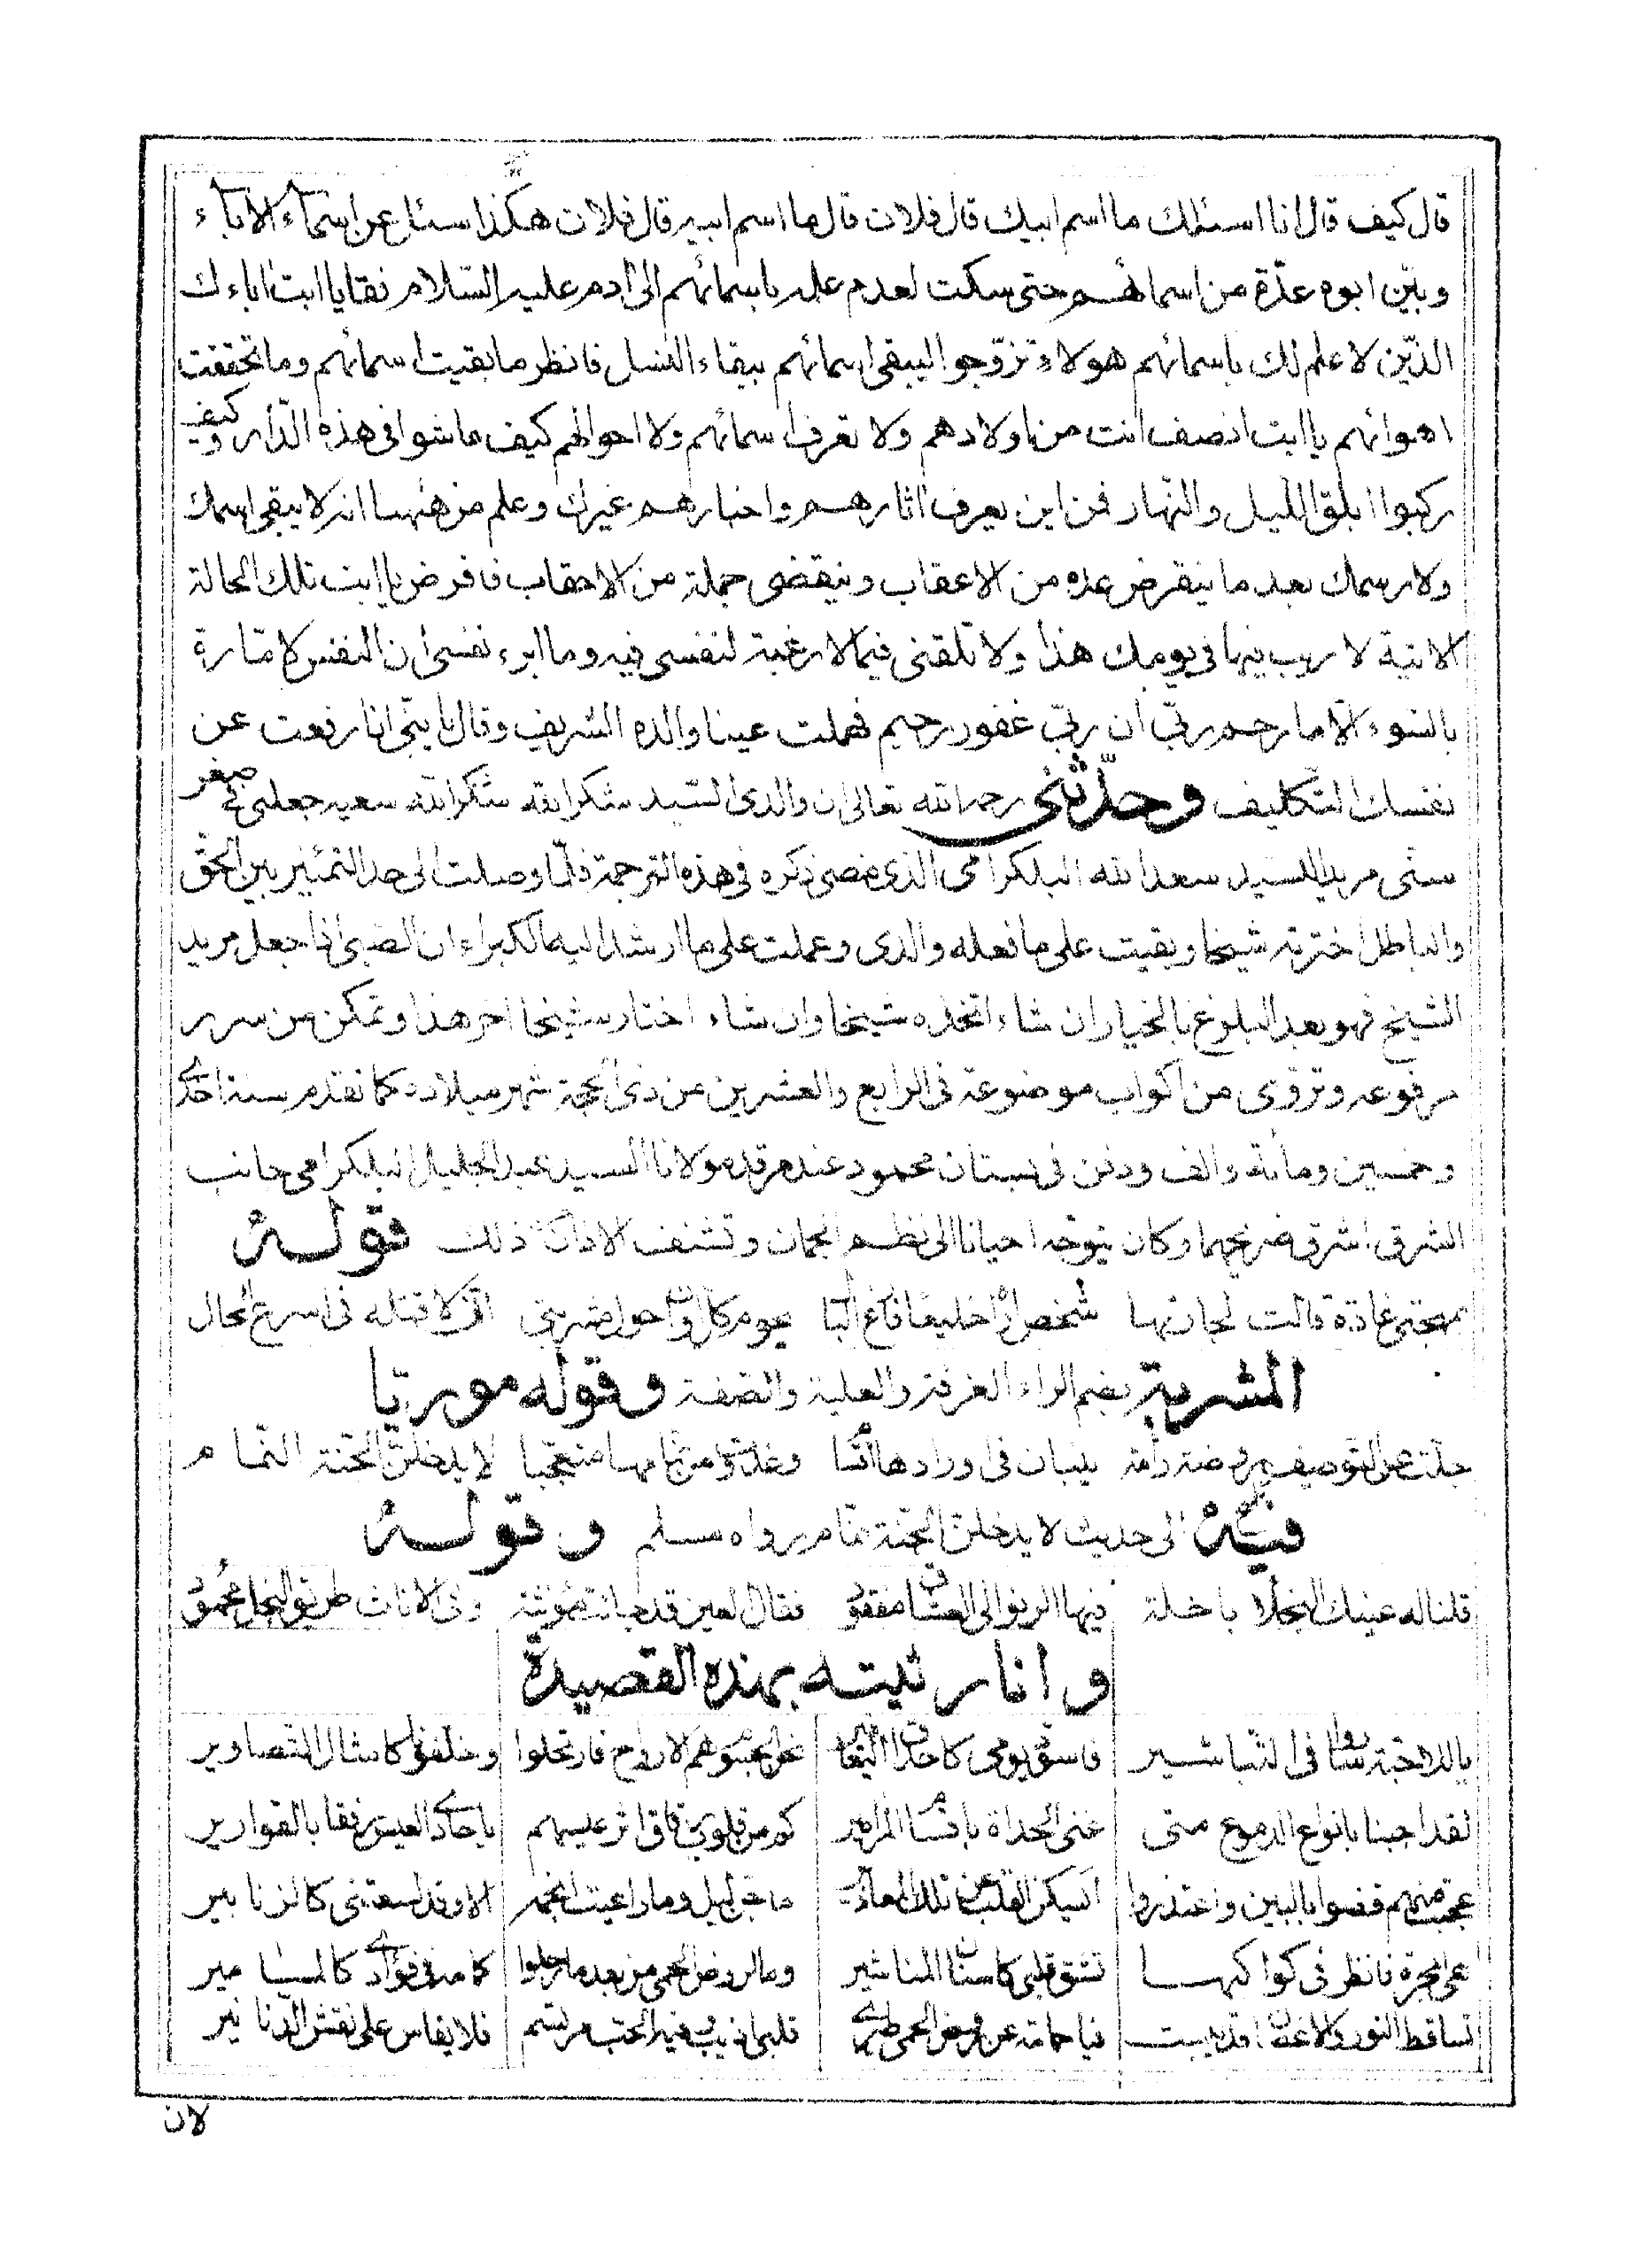 قال كيف قال انا اسئلك ما اسم ابيك قال فلان قال ما اسم ابيه قال فلان هكذا سئل عن اسماء الآباء
وبيّن ابوه عدّة من اسمائهم حتى سكت لعدم علمه باسمائهم الى آدم عليه السّلام فقال يا ابت اباءك
الذّين لا علم لك باسمائهم هولاء تزوّجوا ليبقى اسمائهم ببقاء النسل فانظر ما بقيت اسمائهم وما تحققت
اهوائهم يا ابت انصف انت من اولادهم ولا تعرف اسمائهم ولا احوالهم كيف عاشوا فى هذه الدّار وكيف
ركبوا ابلق اللّيل والنّهار فمن اين يعرف اثارهم واخبارهم غيرك وعلم من ههنا انه لا يبقى اسمك
ولا رسمك بعد ما ينقرض عده من الاعقاب وينقضى جملة من الاحقاب فافرض يا ابت تلك الحالة
الاتية لا ريب فيها فى يومك هذا ولا تلقنى فيما لا رغبة لنفسى فيه وما ابرء نفسى ان النفس لامّارة
بالسّوء الّا ما رحم ربّي ان ربّي غفور رحيم فهملت عينا والده الشريف وقال يا بنىّ انا رفعت عن
نفسك التكليف وحدّثنى رحمه الله تعالى ان والدى السّيد شكر الله شكر الله سعيه جعلنى فى صغر
سنّى مريد السيد سعد الله البلكرامى الذى مضى ذكره فى هذه الترجمة فلمّا وصلت الى حد التمييز بين الحق
والباطل اخترته شيخا وبقيت على ما فعله والدى وعملت على ما ارشد اليه الكبراء ان الصبى اذا جعل مريد
الشيخ فهو بعد البلوغ بالخيار ان شاء اتخذه شيخا وان شاء اختار شيخا اخر هذا وتمكن من سرر
مرفوعه وتروّى من اكواب موضوعة فى الرابع والعشرين من ذى الحجة شهر ميلاده كما تقدم سنة احدى
وخمسين ومائة والف ودفن فى بستان محمود عند مرقد مولانا السيد عبد الجليل البلكرامى جانب
الشرق اشرق ضريحهما وكان يتوجه احيانا الى نظم الجمان وتشنف الاذان ذلك قوله
بمهجتى غادة قالت لجارتها شخص خليع البال يحوم كل احوال مشربتى لاقتله فى اسرع الحال
المشربة بضم الراء الغرفة والعلية والصفة وقوله موريا
جلّت عن التوصيف روضة رامة ينساب فى اورادها وغدوت من نمامها متعجبا لا يدخلنّ الجنّة النمام
فيه الى حديث لا يدخلنّ الجنّة نمّام رواه مسلم وقوله
قلنا له عينك النجلاء باخلة فيها الرنو الى العشاق مفقود فقال العين قد جائت مؤنثة وفى الاناث طريق البخل محمود
وانا رثيته بهذه القصيدة
يا للاحبة ساروا فى التباشير فاسودّ يومى كاحداق نحو لهم الارواح فارتحلوا وخلفونا كامثال التصاوير
لقد اجبنا بانواع الدموع متى غنى الحداة باقسام المزامير كم من قلوب رقاق اثر عيسهم يا حادى العيس رفقا بالقوارير
عجبت منهم قضوا بالبين واعتذروا ايسكن القلب من تلك المعاذير ما جن ليل وما راعيت انجمه الا وقد لسعتنى كالزنابير
على المجرة فانظر فى كواكبها تشق قلبى كاسنان المناشير وما لروض الحمى من بعد ما رحلوا كمامه فى فوادى كالمسامير
تساقط النور والاغصان قد يبست فيا حمامة عن روض الحمى طيرى قلبى فيه الحب مرتسم فلا يقاس على نقش الدّنانير
لان